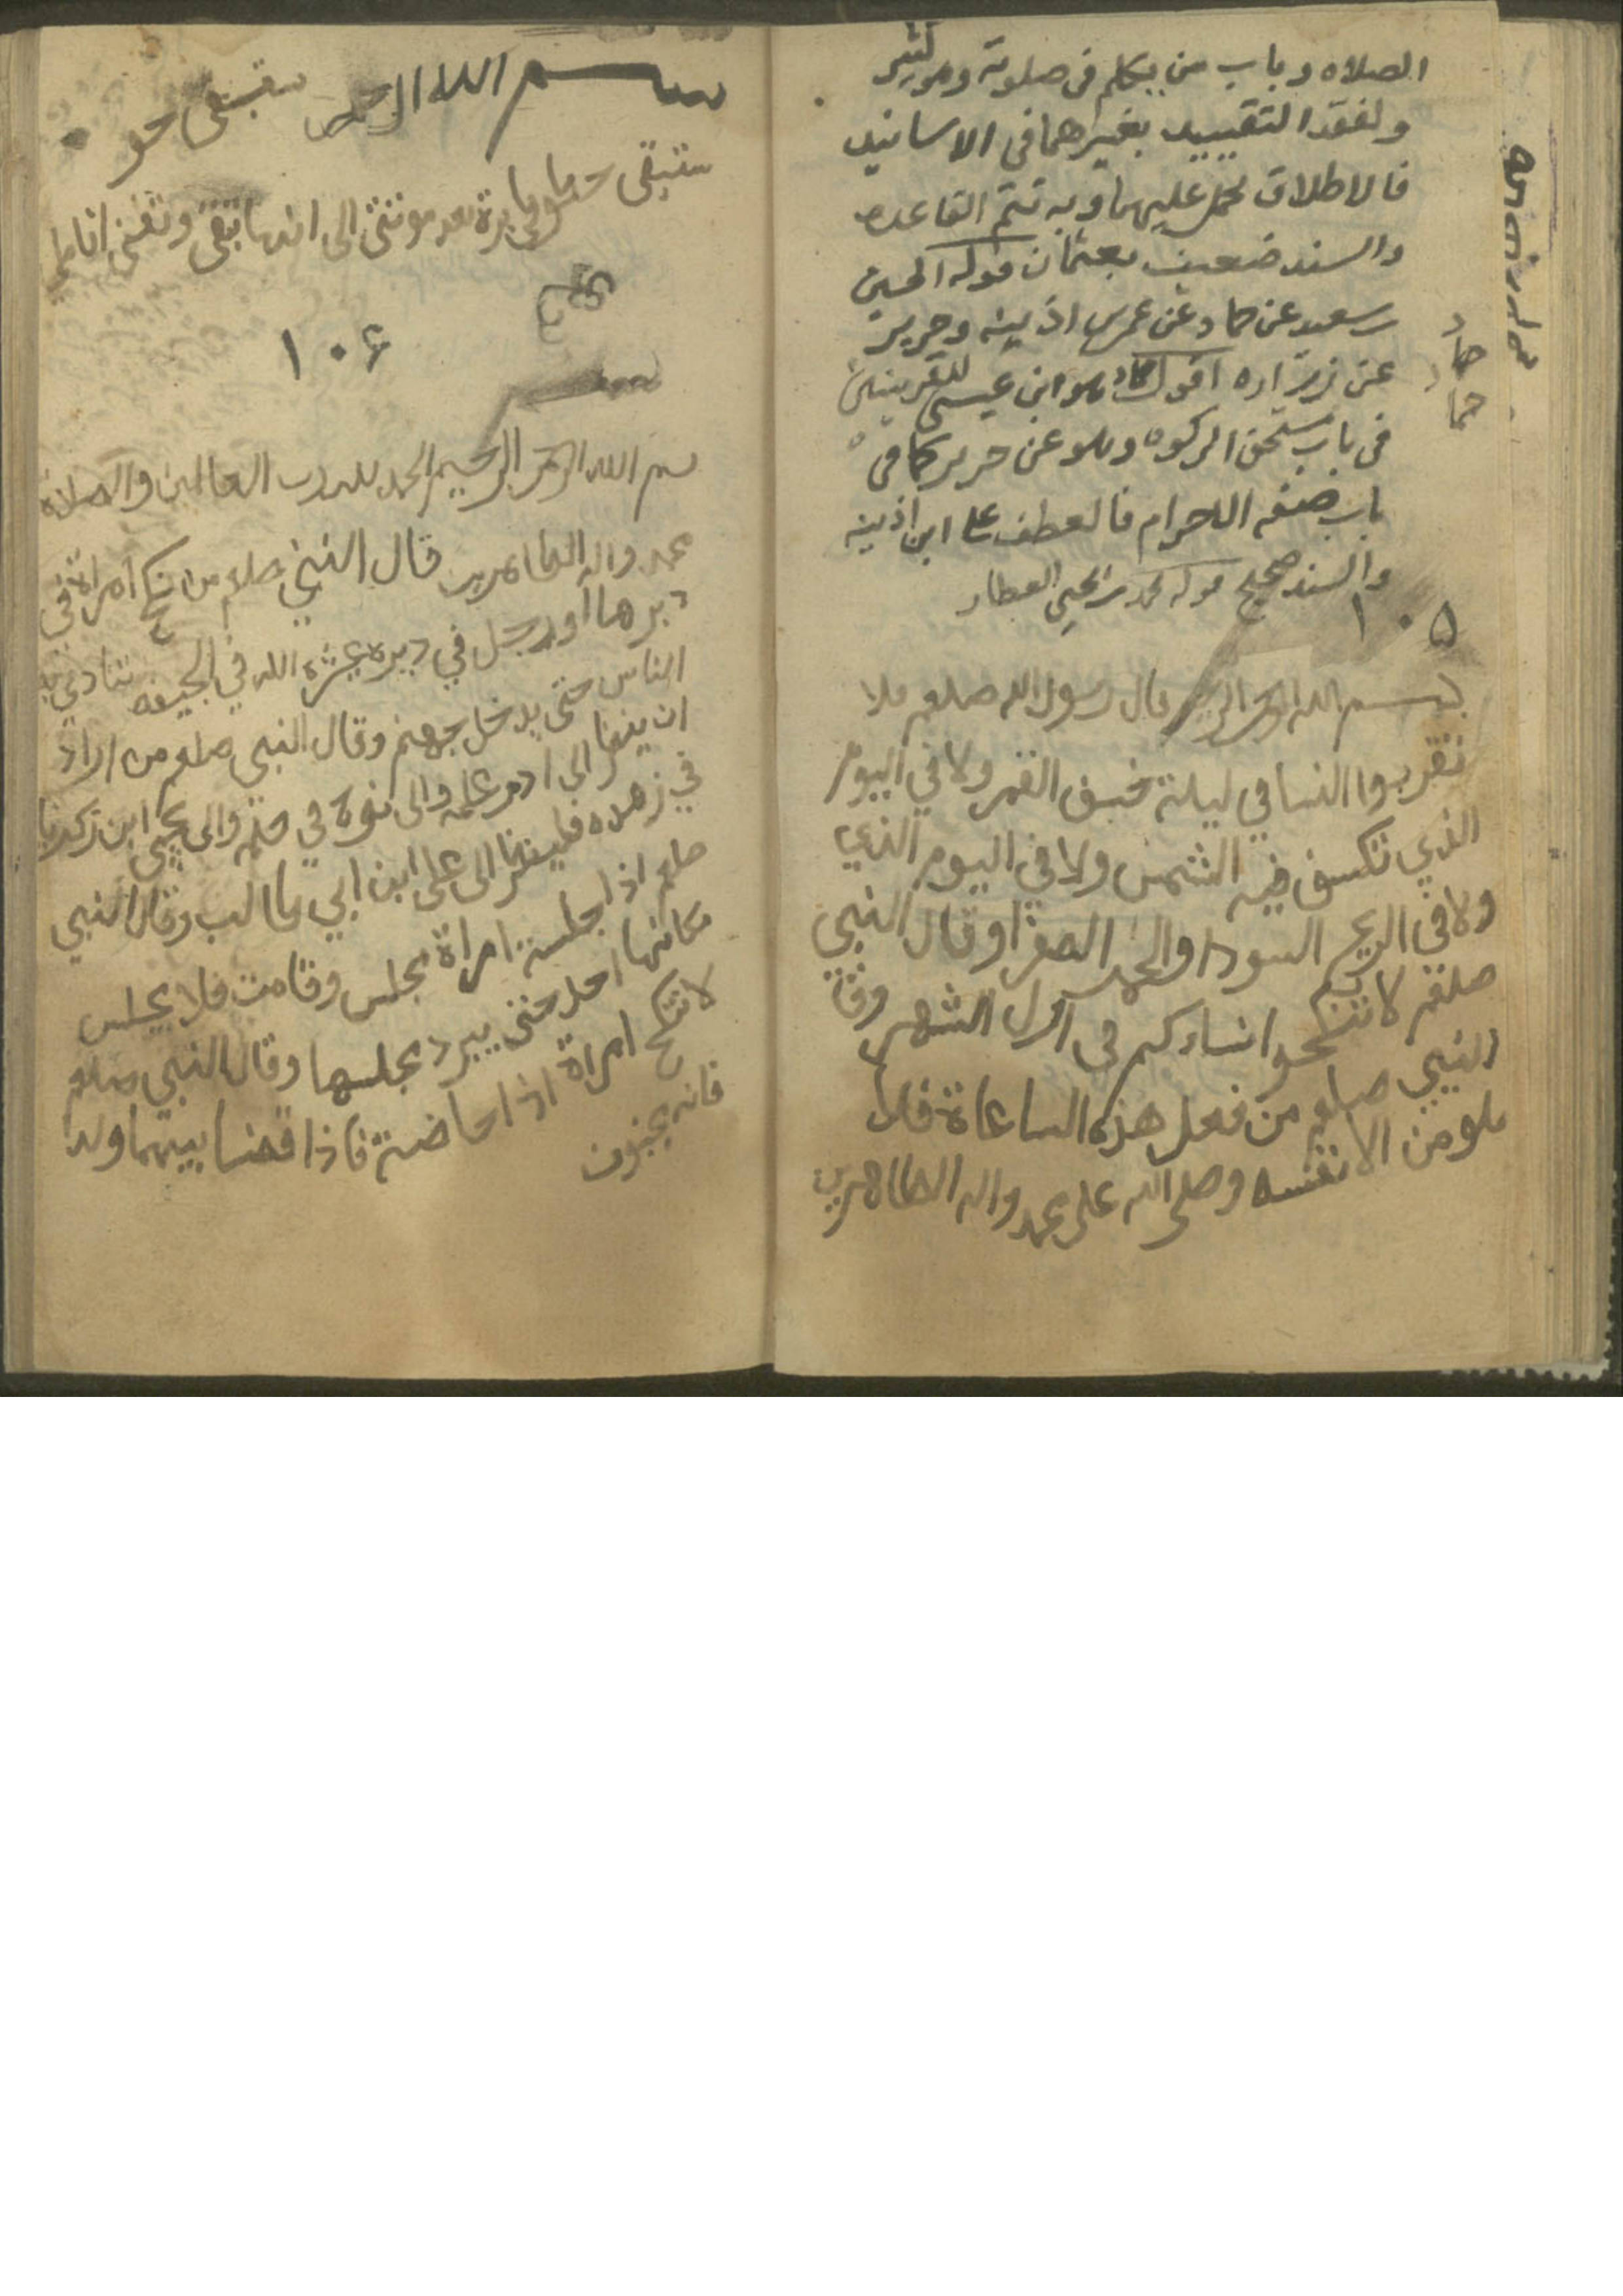 الصلاه وباب من يتكلم فى صلوته
ولفقد التقييد بغيرهما فى الاسانيد
فالاطلاق يحمل عليهما وبه تتم القاعده
والسند ضعيف بعثمان قوله الحسين
بن سعيد عن حماد عن عمر بن اذينه وحريز
عن زراره اقول حماد هو ابن عيسى للقرينتين
فى باب مستحق الزكوه وهو عن حريز كما فى
باب صفه الاحرام فالعطف على ابن اذينه
والسند صحيح قوله محمد بن يحيى العطار
حماد
حما
١٠٥
بسم الله الرحمن الرحيم قال رسول الله صلعم فلا
تقربوا النسا في ليلة خسف القمر ولا في اليوم
الذي تكسف فيه الشمس ولا في اليوم الذي
ولا في الريح السودا والحمر الصفرا وقال النبي
صلعم لا تنكحوا نساءكم فى اول الشهر وقا
النبي صلعم من فعل هذه الساعاة فلا
يلومن الا نفسه وصلى الله على محمد واله الطاهرين
بسم الله الرحمن ستبقى
ستبقى بعد موتتى الى انها تبقى وتفنى اناملي
١٠٦
بسم
بسم الله الرحمن الرحيم الحمد لله رب العالمين والصلاة
محمد واله الطاهرين قال النبي صلعم من نكح امراة في
دبرها او رجل في دبره عشره الله في الجيفه تتادي به
الناس حتى يدخل جهنم وقال النبي صلعم من اراد
ان ينظر الى ادم علمه والى نوح في والى يحيى ابن زكريا
في زهده فلينظر الى على ابن ابي طالب وقال النبي
صلعم اذا جلست امراة مجلس وقامت فلا يجلس
مكانها احد حتى يبرد مجلسها وقال النبي صلعم
لا تنكح امراة اذا حاضت فاذا قضا بينهما ولدا
فانه مجنون